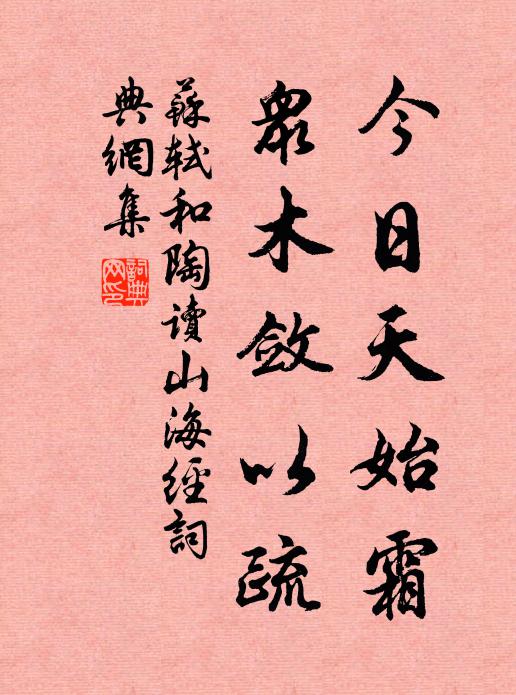 今日天始霜
衆木斂以疏
蘇軾和陶讀山海經詞
典網集
詞典
网印